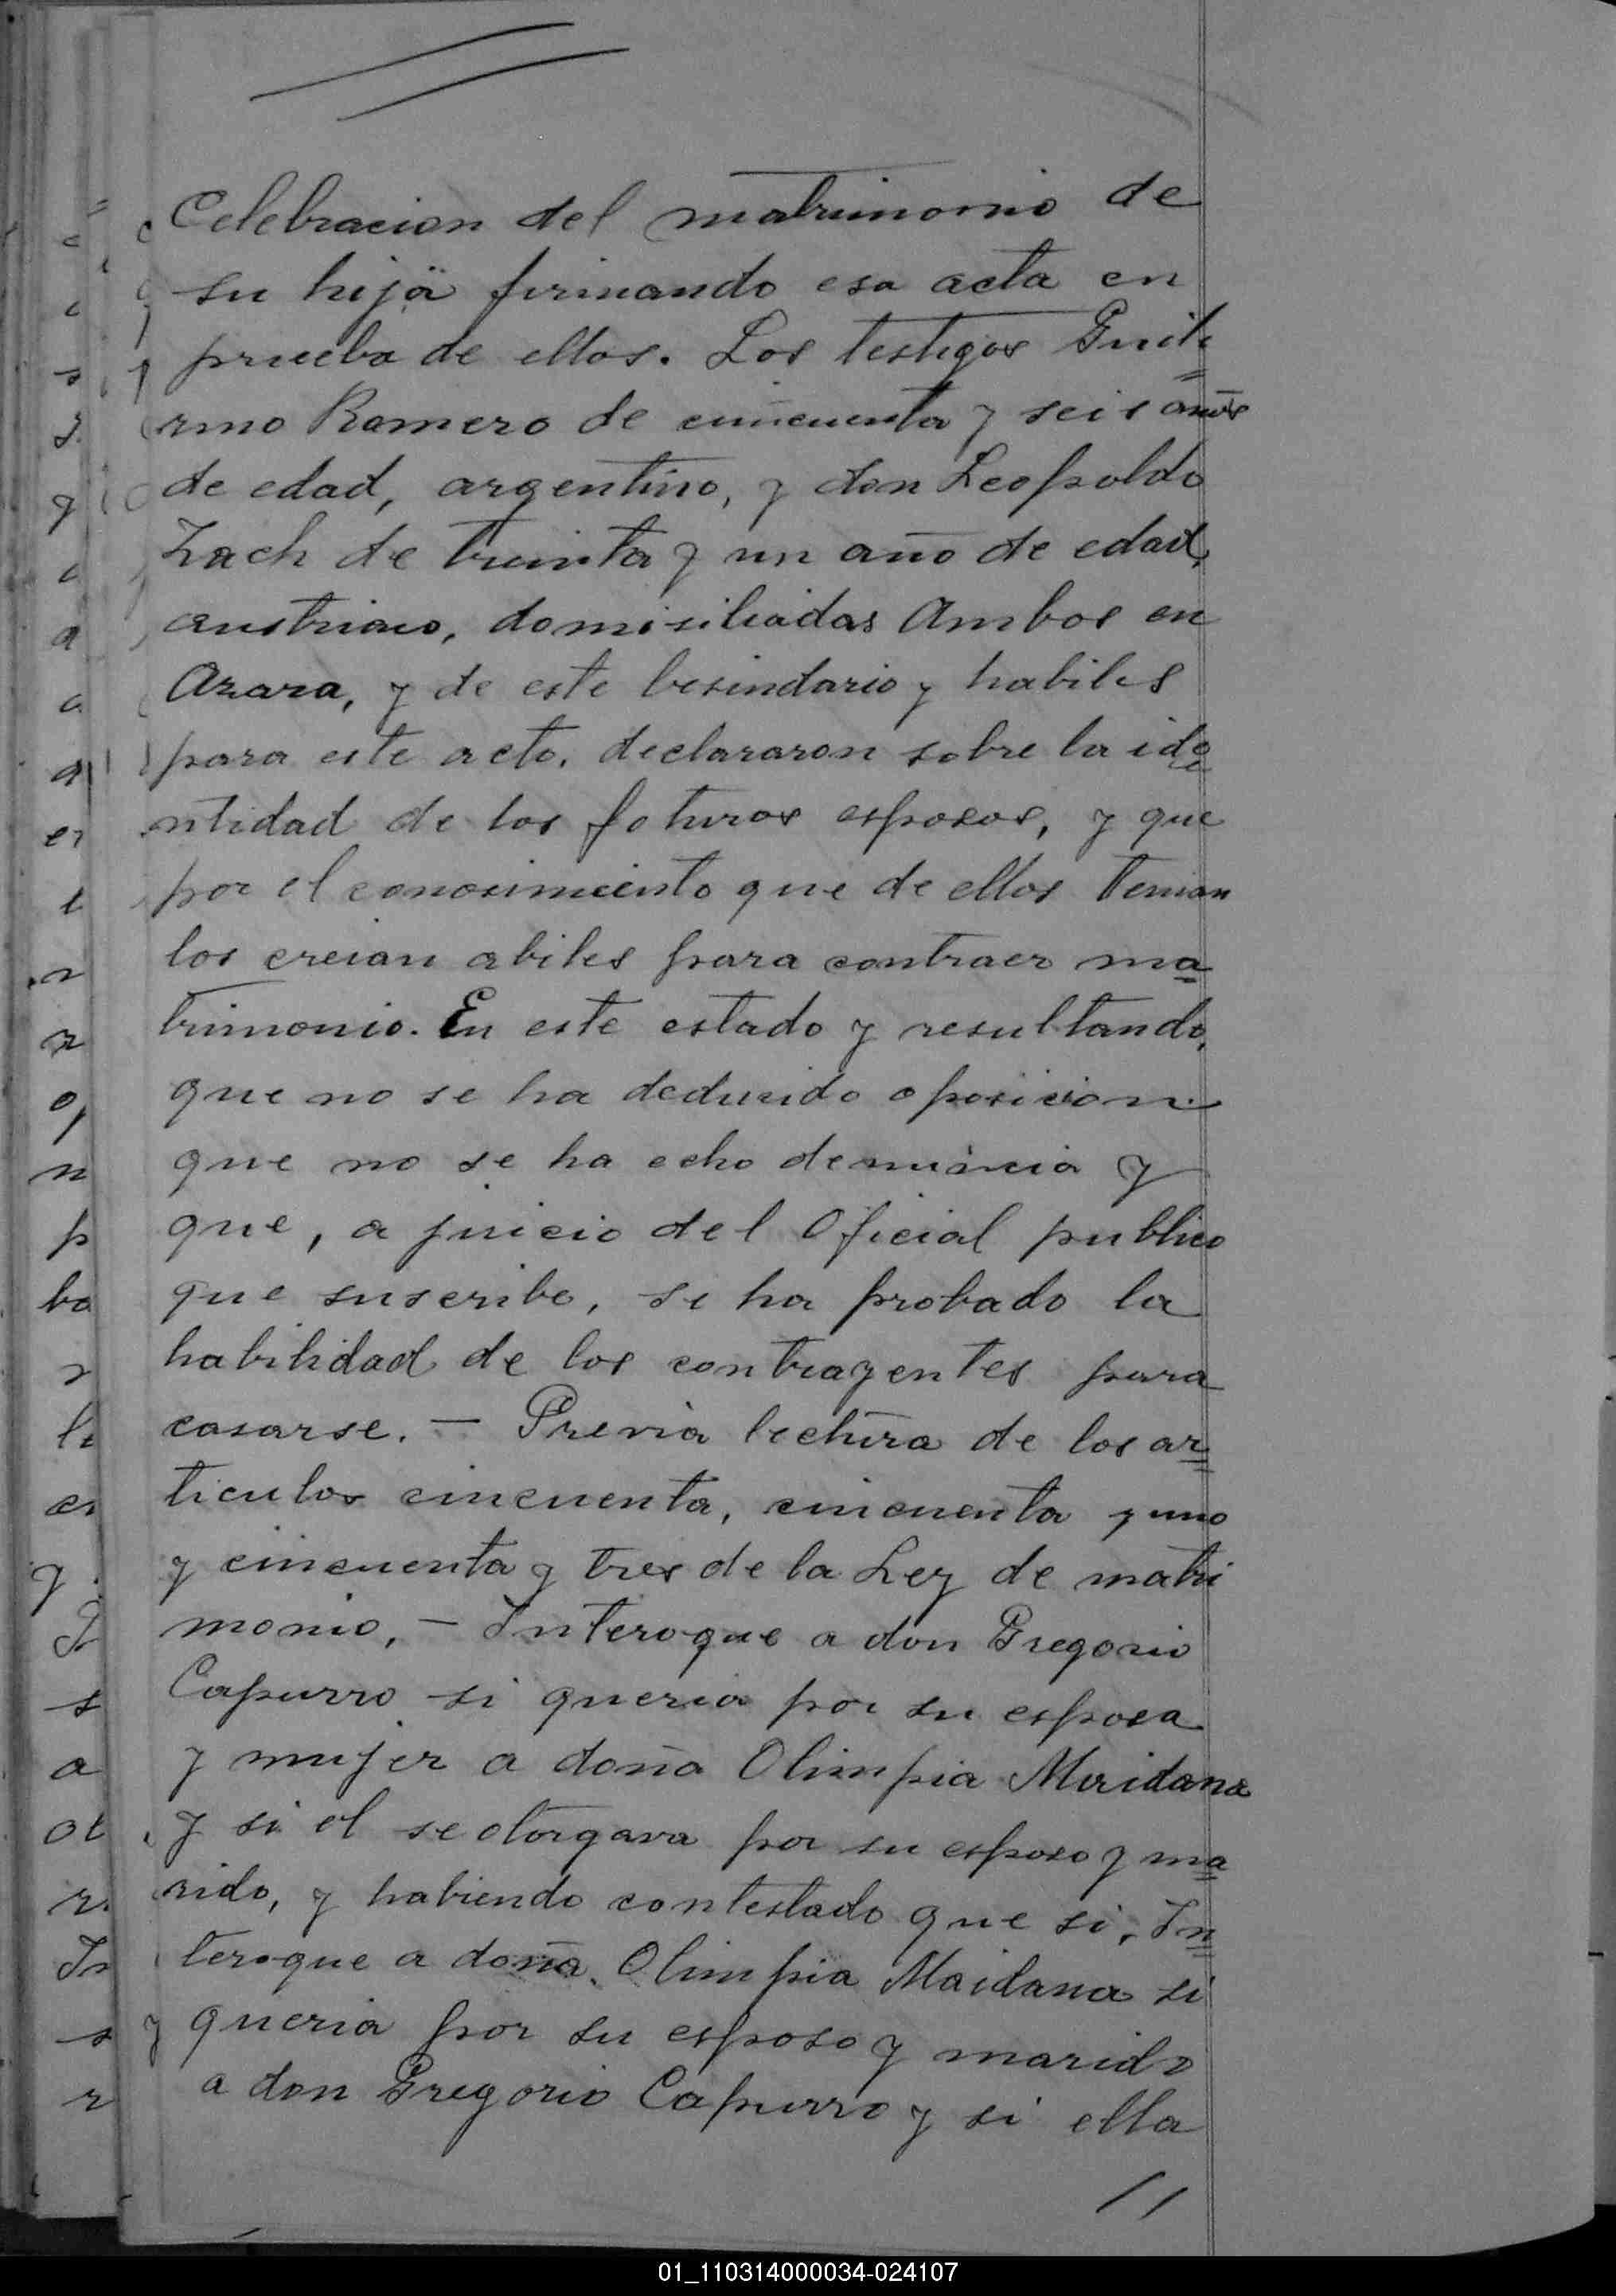 Celebracion del matrimonio de
su hija firmando esa acta en
prueba de ellos. Los testigos Guile
rmo Romero de cuincuenta y seis años
de edad, argentino, y don Leopoldo
Zach de trunta y un año de edad,
austriaco, domisiliadas Ambos en
Azara, y de este besindario y habiles
para este acto, declararon sobre la ide
ntidad de los foturos esposos, y que
por el conosimiento que de ellos tenian
los creian abiles para contraer ma
trimonio. En este estado y resultando,
que no se ha dedusido oposicion
que no se ha echo denuncia y
que, a juicio del Oficial publico
que suscribe, se ha probado la
habilidad de los contrayentes para
casarse. — Previa lectura de los ar
ticulos cincuenta, cincuenta y uno
y cincuenta y tres de la Ley de matri
monio, — Interoque a don Gregorio
Capurro si queria por su esposa
y mujer a doña Olimpia Meridana
y si el se otorgava por su esposo y ma
rido, y habiendo contestado que si, In
teroque a doña Olimpia Maidana si
queria por su esposo y marido
a don Gregorio Capurro y si ella
01_110314000034-024107